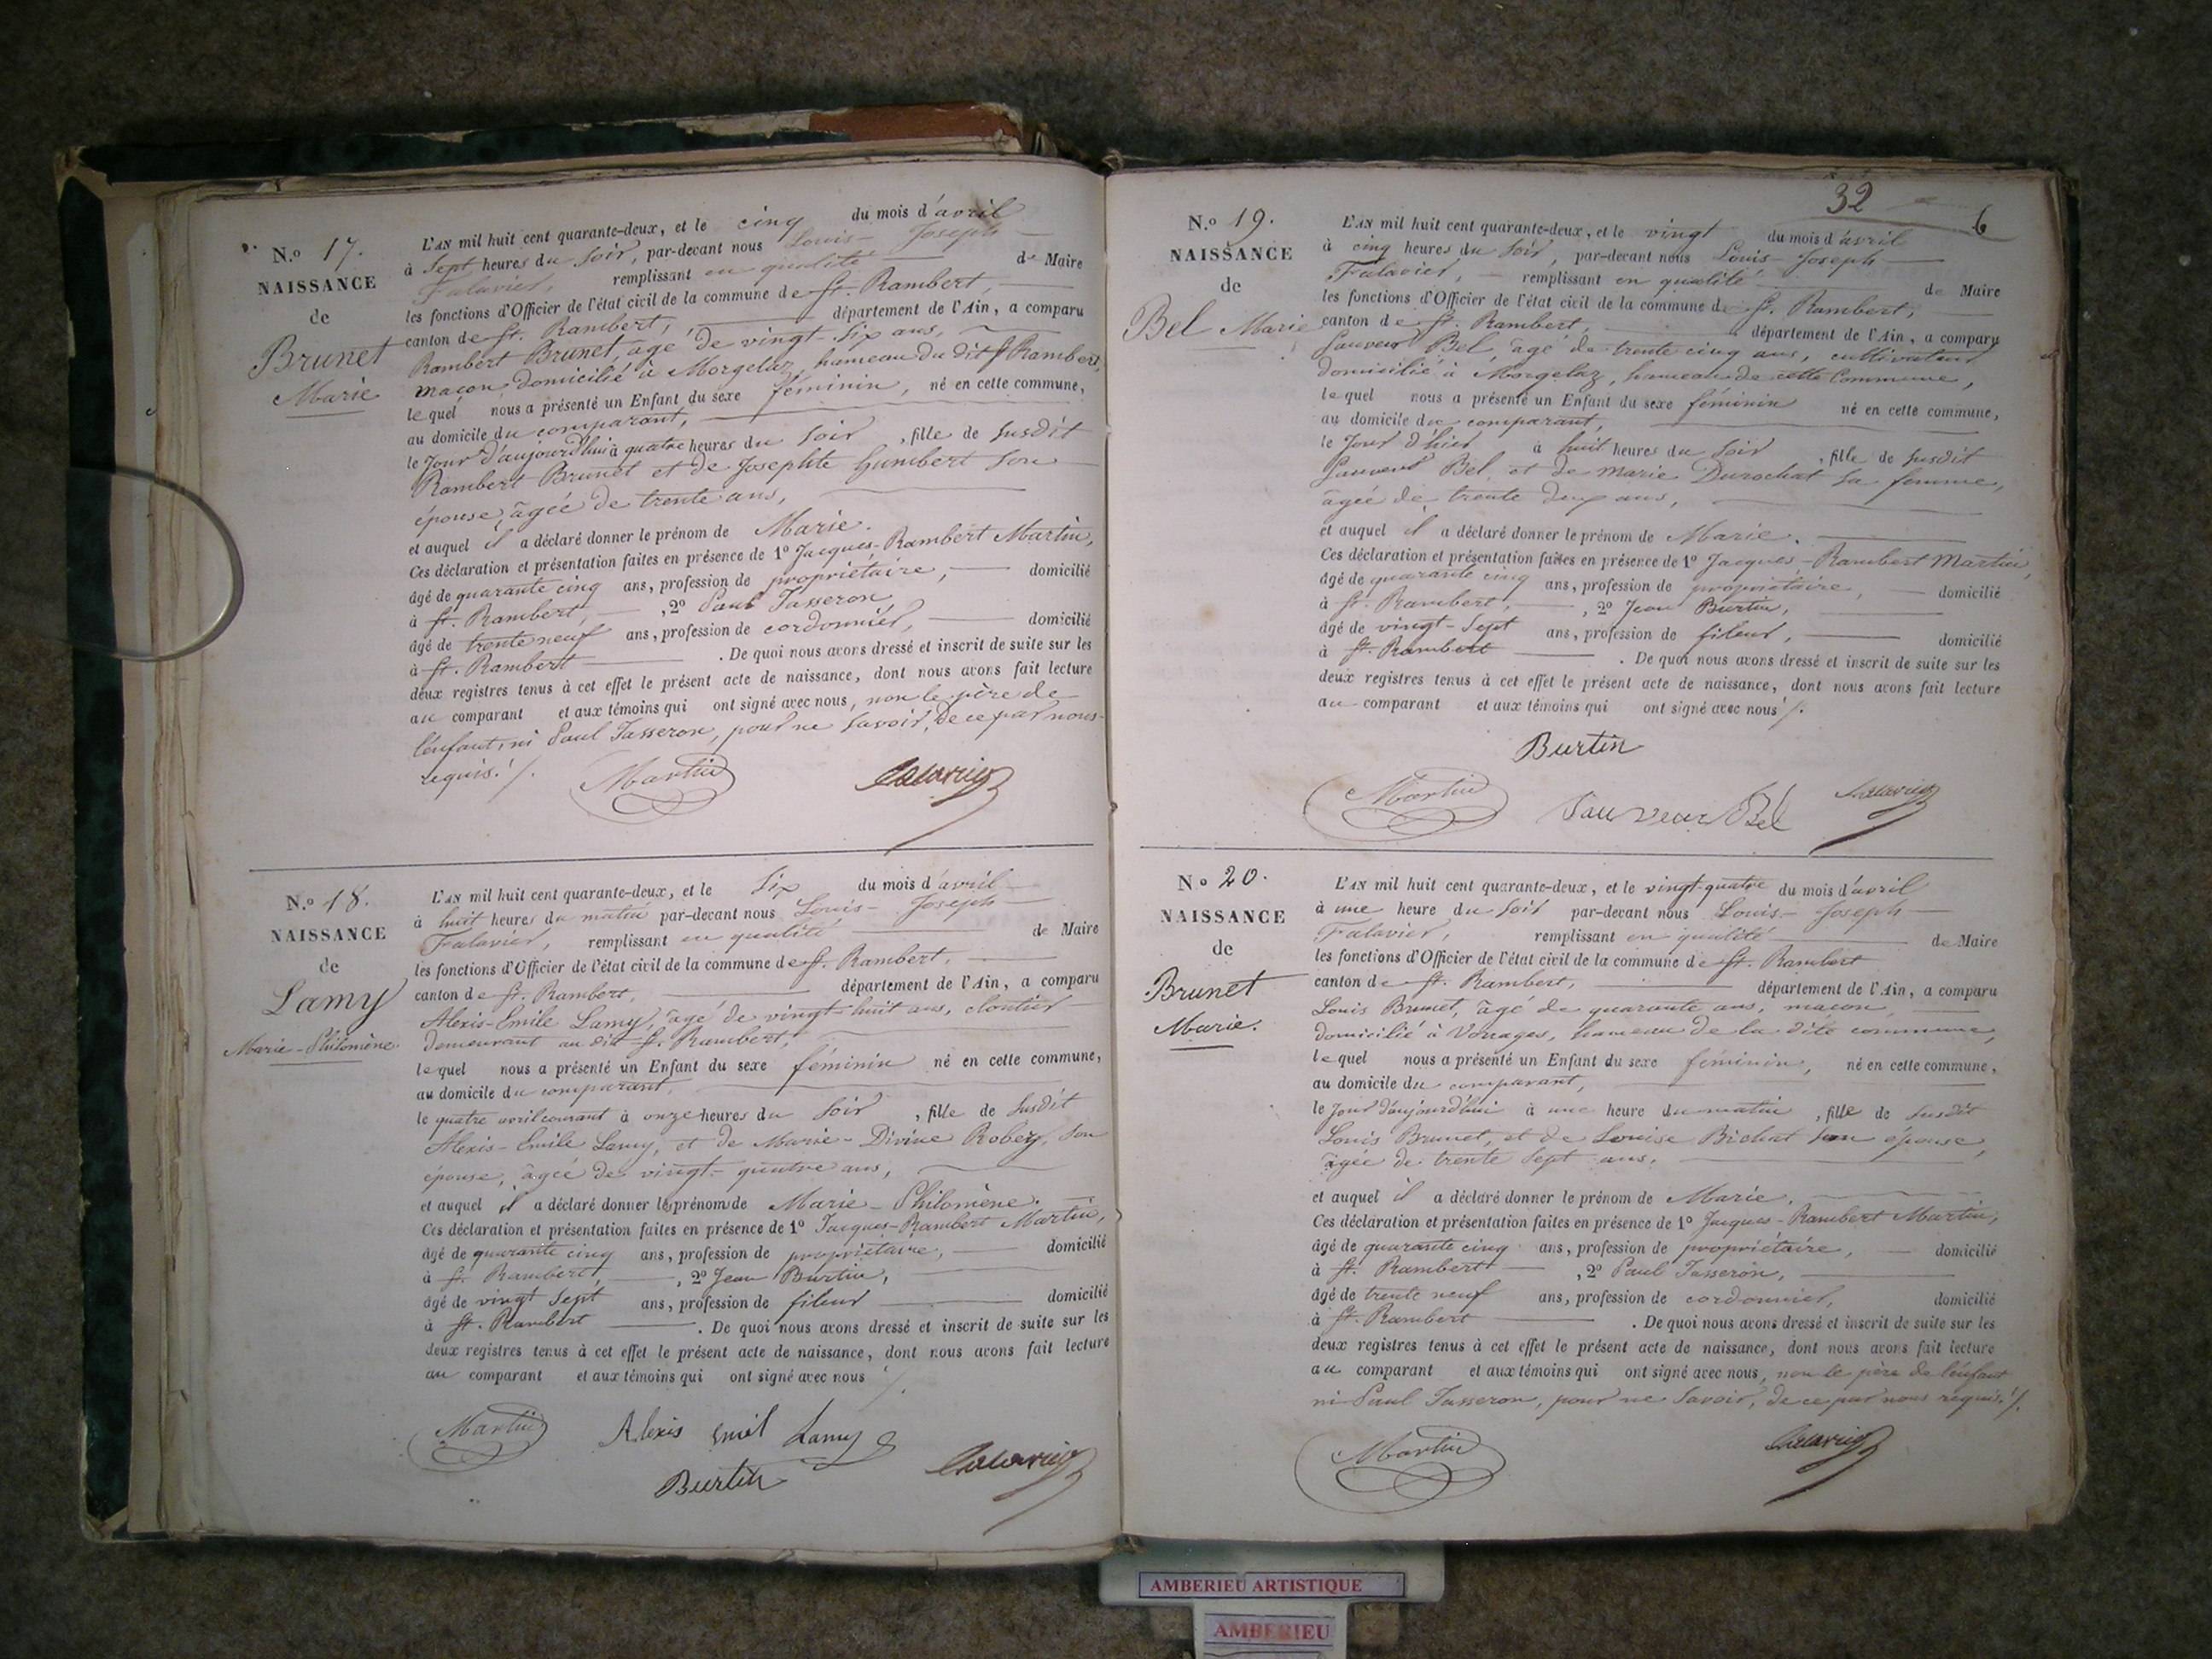 N.o 17.
NAISSANCE
de
Brunet
Marie
L'AN mil huit cent quarante-deux, et le cinq du mois d'avril
à Sept heures du soir, par-devant nous Louis- Joseph
Falavier, remplissant en qualité de Maire
les fonctions d'Officier de l'état civil de la commune de St. Rambert,
canton de St. Rambert, département de l'Ain, a comparu
Rambert Brunet, âgé de vingt-six ans,
maçon, domicilié à Morgelaz, hameau du dit St Rambert,
lequel nous a présenté un Enfant du sexe féminin, né en cette commune,
au domicile du comparant,
le Jour d'aujourd'hui à quatre heures du soir, fille de susdit
Rambert Brunet et de Josephte Humbert son
épouse, âgée de trente ans,
et auquel il a déclaré donner le prénom de Marie.
Ces déclaration et présentation faites en présence de 1o Jacques-Rambert Martin,
âgé de quarante cinq ans, profession de propriétaire, domicilié
à St. Rambert, , 2o Paul Tasseron
âgé de trente neuf ans, profession de cordonnier, domicilié
à St. Rambert . De quoi nous avons dressé et inscrit de suite sur les
deux registres tenus à cet effet le présent acte de naissance, dont nous avons fait lecture
au comparant et aux témoins qui ont signé avec nous, non le père de
l'enfant, ni Paul Tasseron, pour ne savoir, de ce par nous
requis ./.
Martin Falavier
N.o 18.
NAISSANCE
de
Lamy
Marie-Philomène.
L'AN mil huit cent quarante-deux, et le six du mois d'avril
à huit heures du matin par-devant nous Louis- Joseph
Falavier, remplissant en qualité de Maire
les fonctions d'Officier de l'état civil de la commune de St. Rambert,
canton de St. Rambert, département de l'Ain, a comparu
Alexis-Emile Lamy, âgé de vingt-huit ans, cloutier
demeurant au dit St. Rambert,
lequel nous a présenté un Enfant du sexe féminin né en cette commune,
au domicile du comparant,
le quatre avril courant à onze heures du soir, fille de susdit
Alexis-Emile Lamy, et de Marie-Divine Robey, son
épouse, âgée de vingt-quatre ans,
et auquel il a déclaré donner le prénom de Marie-Philomène.
Ces déclaration et présentation faites en présence de 1o Jacques-Rambert Martin,
âgé de quarante cinq ans, profession de propriétaire, domicilié
à St. Rambert, , 2o Jean Burtin,
âgé de vingt sept ans, profession de fileur domicilié
à St. Rambert . De quoi nous avons dressé et inscrit de suite sur les
deux registres tenus à cet effet le présent acte de naissance, dont nous avons fait lecture
au comparant et aux témoins qui ont signé avec nous ./.
Martin Alexis Emil Lamy
Burtin Falavier
32
6
N.o 19.
NAISSANCE
de
Bel Marie
L'AN mil huit cent quarante-deux, et le vingt du mois d'avril
à cinq heures du soir, par-devant nous Louis-Joseph
Falavier, remplissant en qualité de Maire
les fonctions d'Officier de l'état civil de la commune de St. Rambert,
canton de St. Rambert, département de l'Ain, a comparu
Sauveur Bel, âgé de trente cinq ans, cultivateur
domicilié à Morgelaz, hameau de cette Commune,
lequel nous a présenté un Enfant du sexe féminin né en cette commune,
au domicile du comparant,
le Jour d'hier à huit heures du soir, fille de susdit
Sauveur Bel, et de Marie Durochat sa femme,
âgée de trente deux ans,
et auquel il a déclaré donner le prénom de Marie.
Ces déclaration et présentation faites en présence de 1o Jacques-Rambert Martin,
âgé de quarante cinq ans, profession de propriétaire, domicilié
à St. Rambert, , 2o Jean Burtin,
âgé de vingt-sept ans, profession de fileur, domicilié
à St. Rambert . De quoi nous avons dressé et inscrit de suite sur les
deux registres tenus à cet effet le présent acte de naissance, dont nous avons fait lecture
au comparant et aux témoins qui ont signé avec nous ./.
Burtin
Martin Sauveur Bel Falavier
No 20.
NAISSANCE
de
Brunet
Marie.
L'AN mil huit cent quarante-deux, et le vingt-quatre du mois d'avril
à une heure du soir par-devant nous Louis-Joseph
Falavier, remplissant en qualité de Maire
les fonctions d'Officier de l'état civil de la commune de St. Rambert
canton de St. Rambert, département de l'Ain, a comparu
Louis Brunet, âgé de quarante ans, maçon,
domicilié à Vorages, hameau de la dite commune,
lequel nous a présenté un Enfant du sexe féminin, né en cette commune,
au domicile du comparant,
le Jour d'aujourd'hui à une heure du matin, fille de susdit
Louis Brunet, et de Louise Bichat son épouse,
âgée de trente sept ans,
et auquel il a déclaré donner le prénom de Marie.
Ces déclaration et présentation faites en présence de 1o Jacques-Rambert Martin,
âgé de quarante cinq ans, profession de propriétaire, domicilié
à St. Rambert , 2o Paul Tasseron,
âgé de trente neuf ans, profession de cordonnier, domicilié
à St. Rambert . De quoi nous avons dressé et inscrit de suite sur les
deux registres tenus à cet effet le présent acte de naissance, dont nous avons fait lecture
au comparant et aux témoins qui ont signé avec nous, non le père de l'enfant
ni Paul Tasseron, pour ne savoir, de ce par nous requis ./.
Martin Falavier
AMBERIEU ARTISTIQUE
AMBERIEU